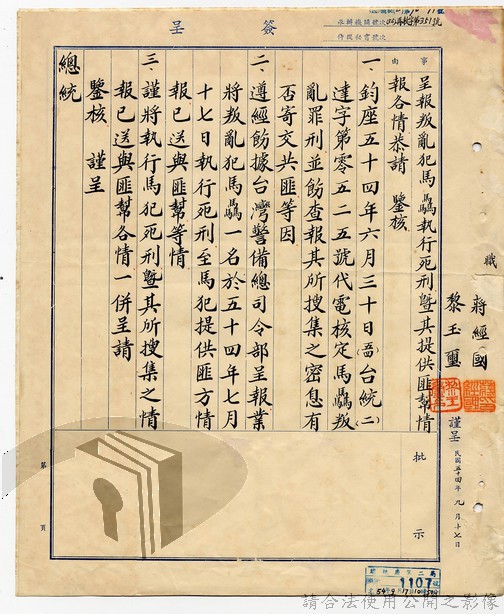 簽呈
事由
呈報叛亂犯馬驫執行死刑暨其提供匪幫情
報各情恭請 鑒核
一、鈞座五十四年六月三十日(五四)台統(二)
達字第零五二五號代電核定馬驫叛
亂罪刑並飭查報其所搜集之密息有
否寄交共匪等因
二、遵經飭據台灣警備總司令部呈報業
將叛亂犯馬驫一名於五十四年七月
十七日執行死刑至馬犯提供匪方情
報已送與匪幫等情
三、謹將執行馬犯死刑暨其所搜集之情
報已送與匪幫各情一併呈請
鑒核 謹呈
總統
職 蔣經國
黎玉璽
謹呈
民國五十四年九月十七日
批示
第 頁
1107
請合法使用公開之影像